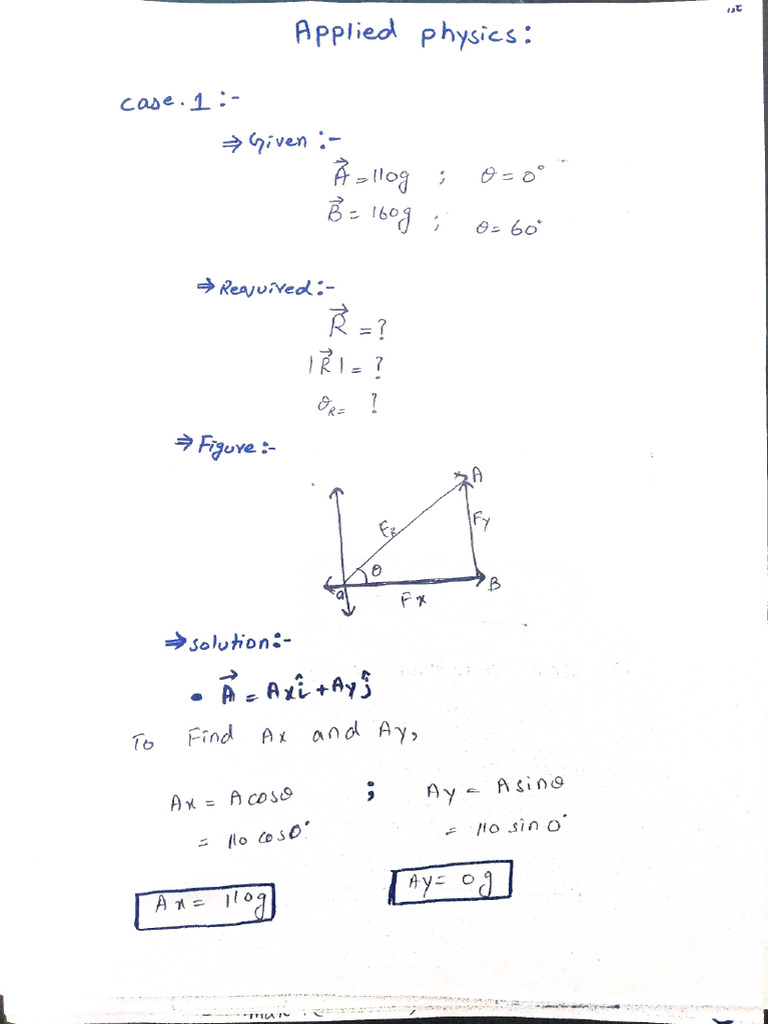 1st
Applied physics:
case.1 :-
⇒ Given :-
A⃗ = 110g ; θ = 0°
B⃗ = 160g ; θ = 60°
⇒ Required :-
R⃗ = ?
|R⃗| = ?
θR = ?
⇒ Figure :-
A
Fy
θ
a
B
Fx
⇒ solution :-
• A⃗ = Axî + Ayĵ
To Find Ax and Ay,
Ax = A cosθ ; Ay = A sinθ
= 110 cos0° = 110 sin 0°
Ax = 110g Ay = 0g